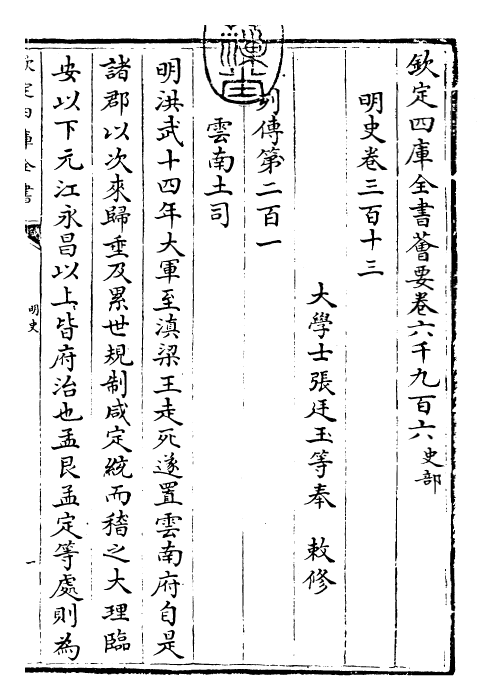 欽定四庫全書薈要卷六千九百六史部
明史卷三百十三
大學士張廷玉等奉　敕修
列傳第二百一
雲南土司
明洪武十四年大軍至滇梁王走死遂置雲南府自是
諸郡以次來歸垂及累世規制咸定統而稽之大理臨
安以下元江永昌以上皆府治也孟艮孟定等處則為
欽定四庫全書
明史
一